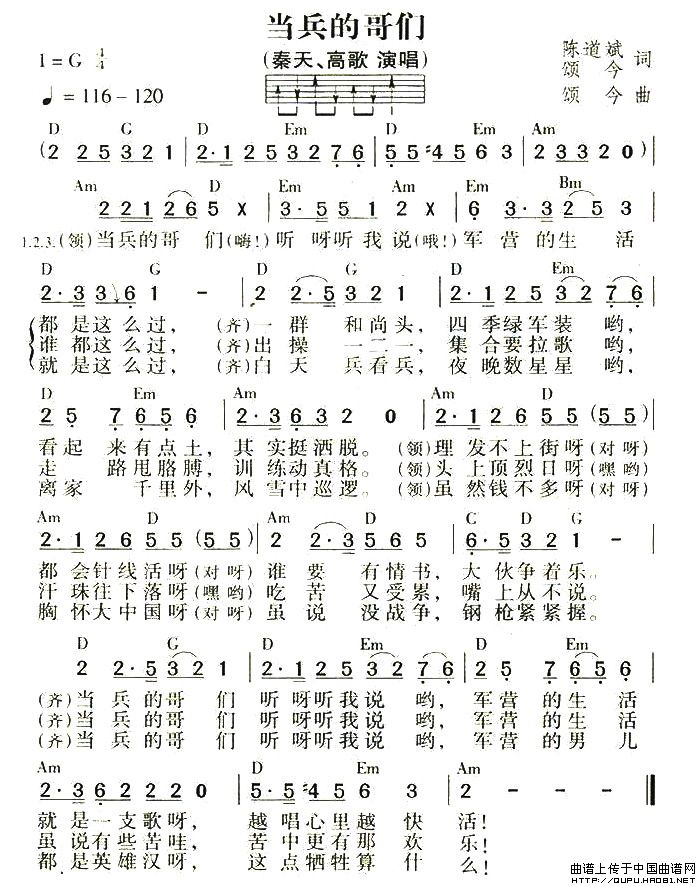 当兵的哥们
(秦天、高歌 演唱)
1=G 4/4
♩=116–120
陈道斌 词
颂今
颂今 曲
D G D Em D Em Am
(2 25321 | 2·1253276 | 55#4563 | 23320)
Am D Em Am Em Bm
221265X | 3·5512X | 63·3253
1.2.3.(领)当兵的哥们(嗨!)听呀听我说(哦!)军营的生活
D G D G D Em
2·3361- | 22·5321 | 2·1253276
都是这么过,(齐)一群和尚头,四季绿军装哟,
谁都这么过,(齐)出操一二一,集合要拉歌哟,
就是这么过,(齐)白天兵看兵,夜晚数星星哟,
D Em Am Am D
257656 | 2·36320 | 2·12655(55)
看起来有点土,其实挺洒脱。(领)理发不上街呀(对呀)
走路甩胳膊,训练动真格。(领)头上顶烈日呀(嘿哟)
离家千里外,风雪中巡逻。(领)虽然钱不多呀(对呀)
Am D Am D C D G
2·12655(55) | 22·3565 | 6·5321-
都会针线活呀(对呀)谁要有情书,大伙争着乐。
汗珠往下落呀(嘿哟)吃苦又受累,嘴上从不说。
胸怀大中国呀(对呀)虽说没战争,钢枪紧紧握。
D G D Em D Em
22·5321 | 2·1253276 | 257656
(齐)当兵的哥们听呀听我说哟,军营的生活
(齐)当兵的哥们听呀听我说哟,军营的生活
(齐)当兵的哥们听呀听我说哟,军营的男儿
Am D Em Am
2·362220 | 5·5#4563 | 2---‖
就是一支歌呀,越唱心里越快活!
虽说有些苦哇,苦中更有那欢乐!
都是英雄汉呀,这点牺牲算什么!
曲谱上传于中国曲谱网
HTTP://QUPU.HAO81.NET